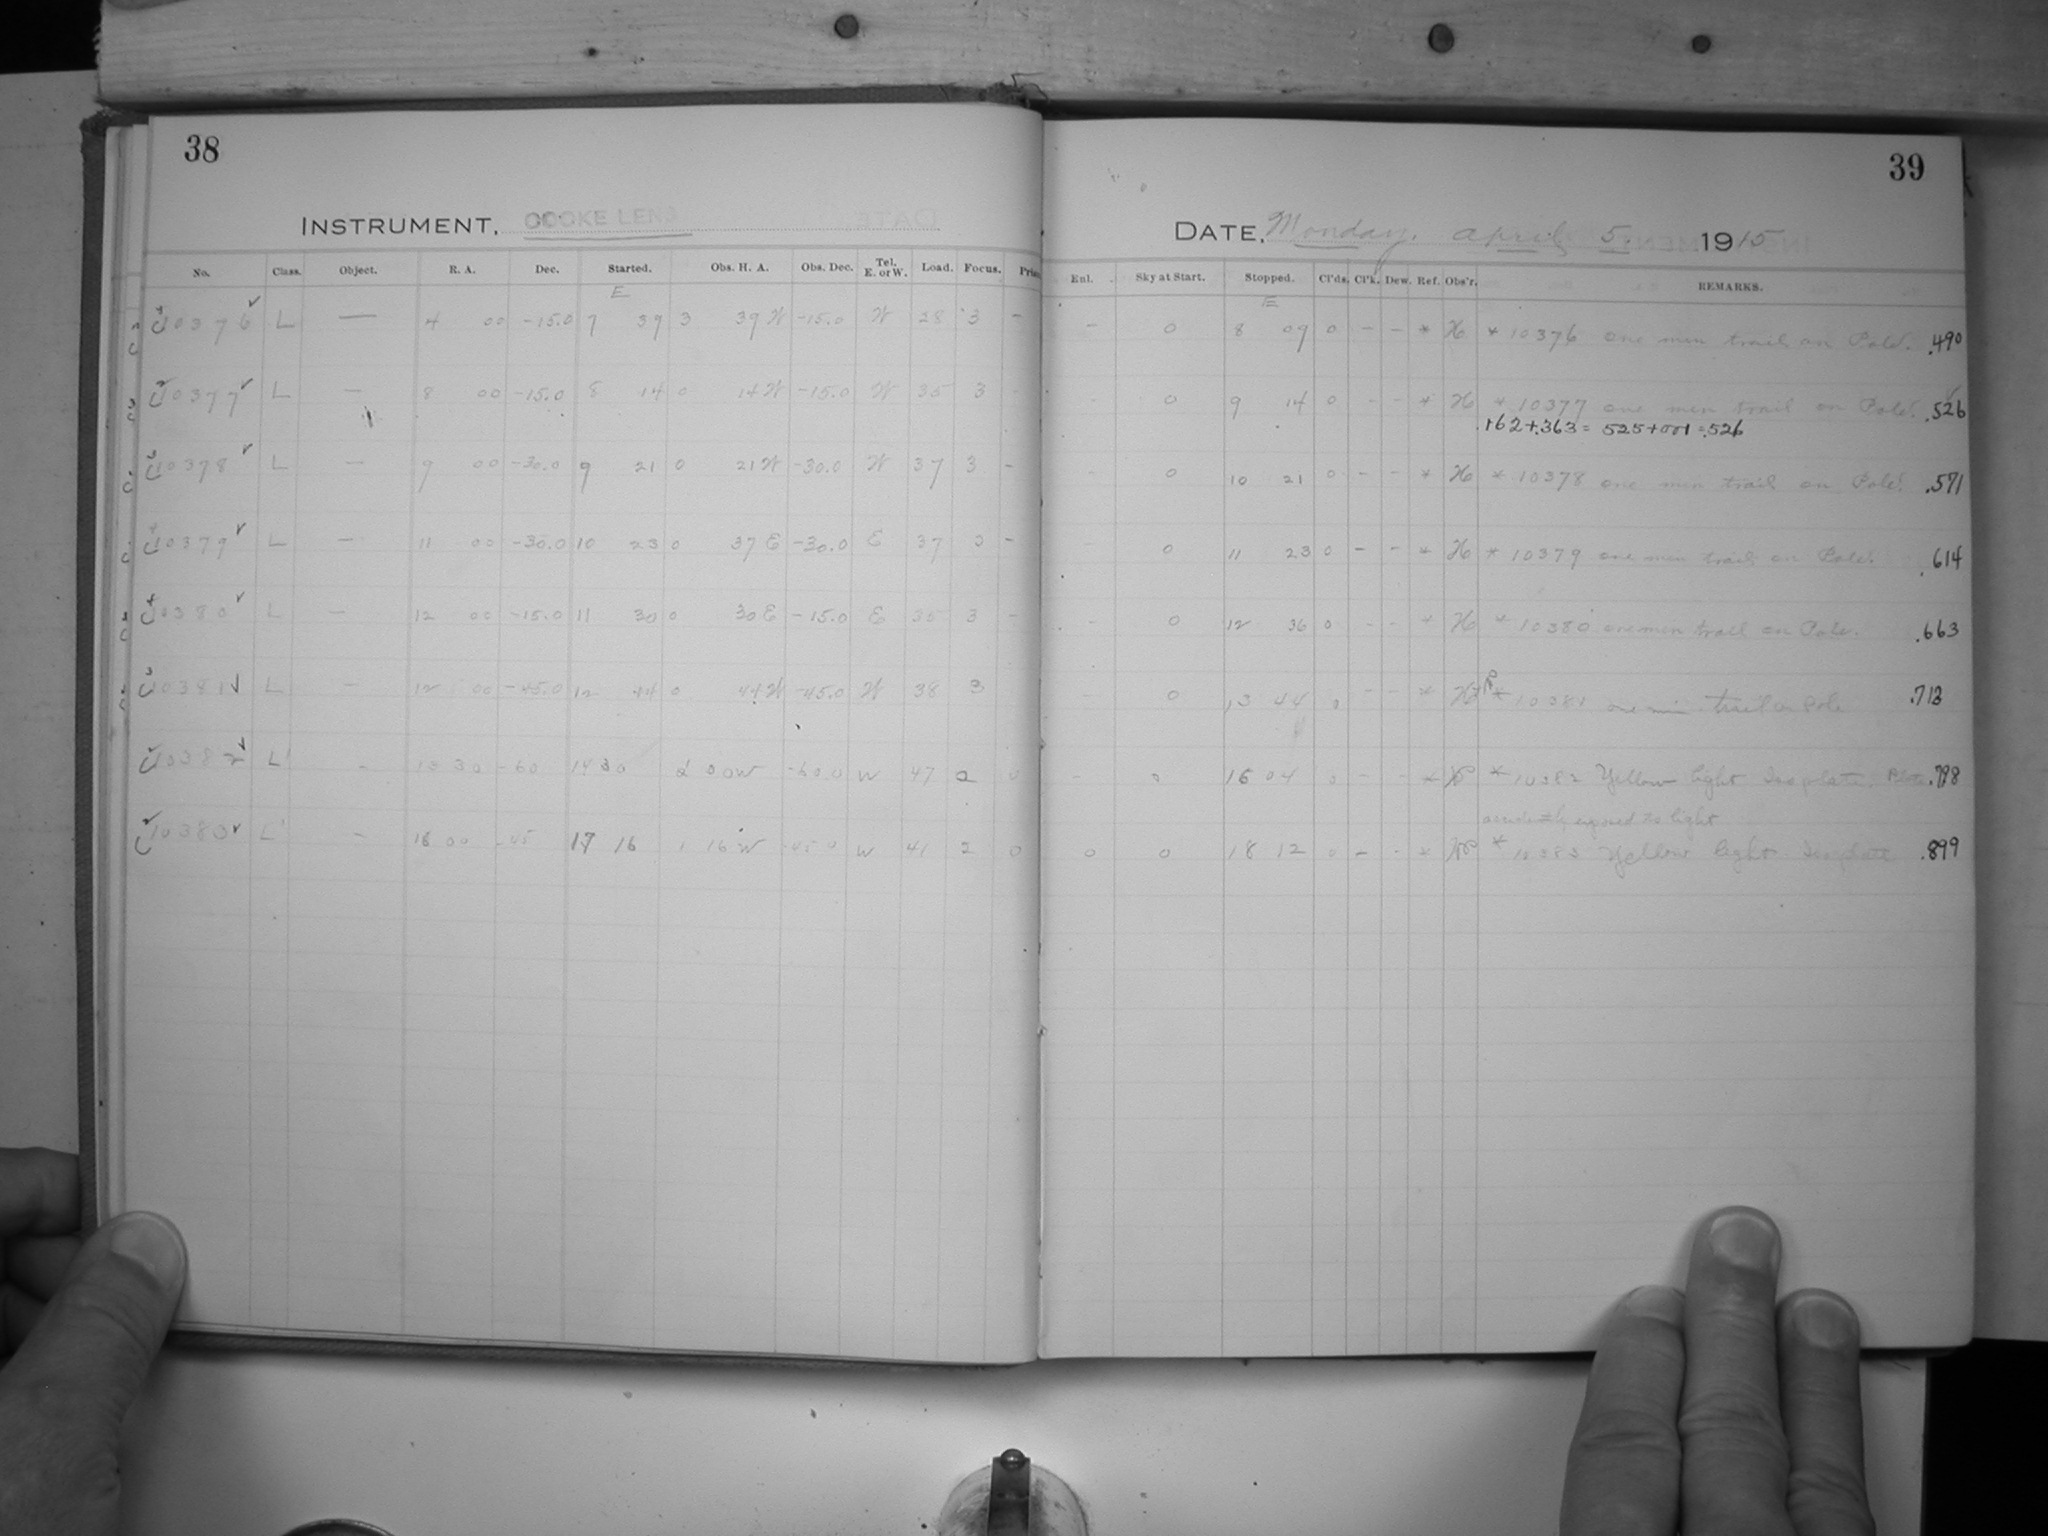 38
INSTRUMENT, COOKE LENS
No. Class. Object. R. A. Dec. Started. Obs. H. A. Obs. Dec. Tel. E. or W. Load. Focus.
E
10376 L — 4 00 -15.0 7 39 3 39 W -15.0 W 28 3 -
10377 L — 8 00 -15.0 8 14 0 14 W -15.0 W 35 3
10378 L — 9 00 -30.0 9 21 0 21 W -30.0 W 37 3 -
10379 L — 11 00 -30.0 10 23 0 37 E -30.0 E 37 3 -
10380 L — 12 00 -15.0 11 30 0 30 E -15.0 E 35 3 -
10381 L - 12 00 -45.0 12 44 0 44 W -45.0 W 38 3
10382 L' - 30 -60 14 30 2 00 W -60.0 W 47 2 0
10383 L' - 16 00 -45 17 16 1 16 W -45.0 W 41 2 0
39
DATE, Monday, April 5, 1915
Enl. Sky at Start. Stopped. Cl'ds. Cl'k. Dew. Ref. Obs'r. REMARKS.
E
- 0 8 09 0 - - * H * 10376 one min trail on Pole. .490
0 9 14 0 - - * H * 10377 one min trail on Pole. .526
.162+.363= 525+001=.526
- 0 10 21 0 - - * H * 10378 one min trail on Pole. .571
- 0 11 23 0 - - * H * 10379 one min trail on Pole. .614
- 0 12 36 0 - - * H * 10380 one min trail on Pole. .663
- 0 13 44 0 - - * * 10381 one min trail on Pole .713
- 0 16 04 0 - - * * 10382 Yellow light Iso plate. Plate .798
accidently exposed to light
0 0 18 12 0 - - * * 10383 Yellow light Isoplate .899